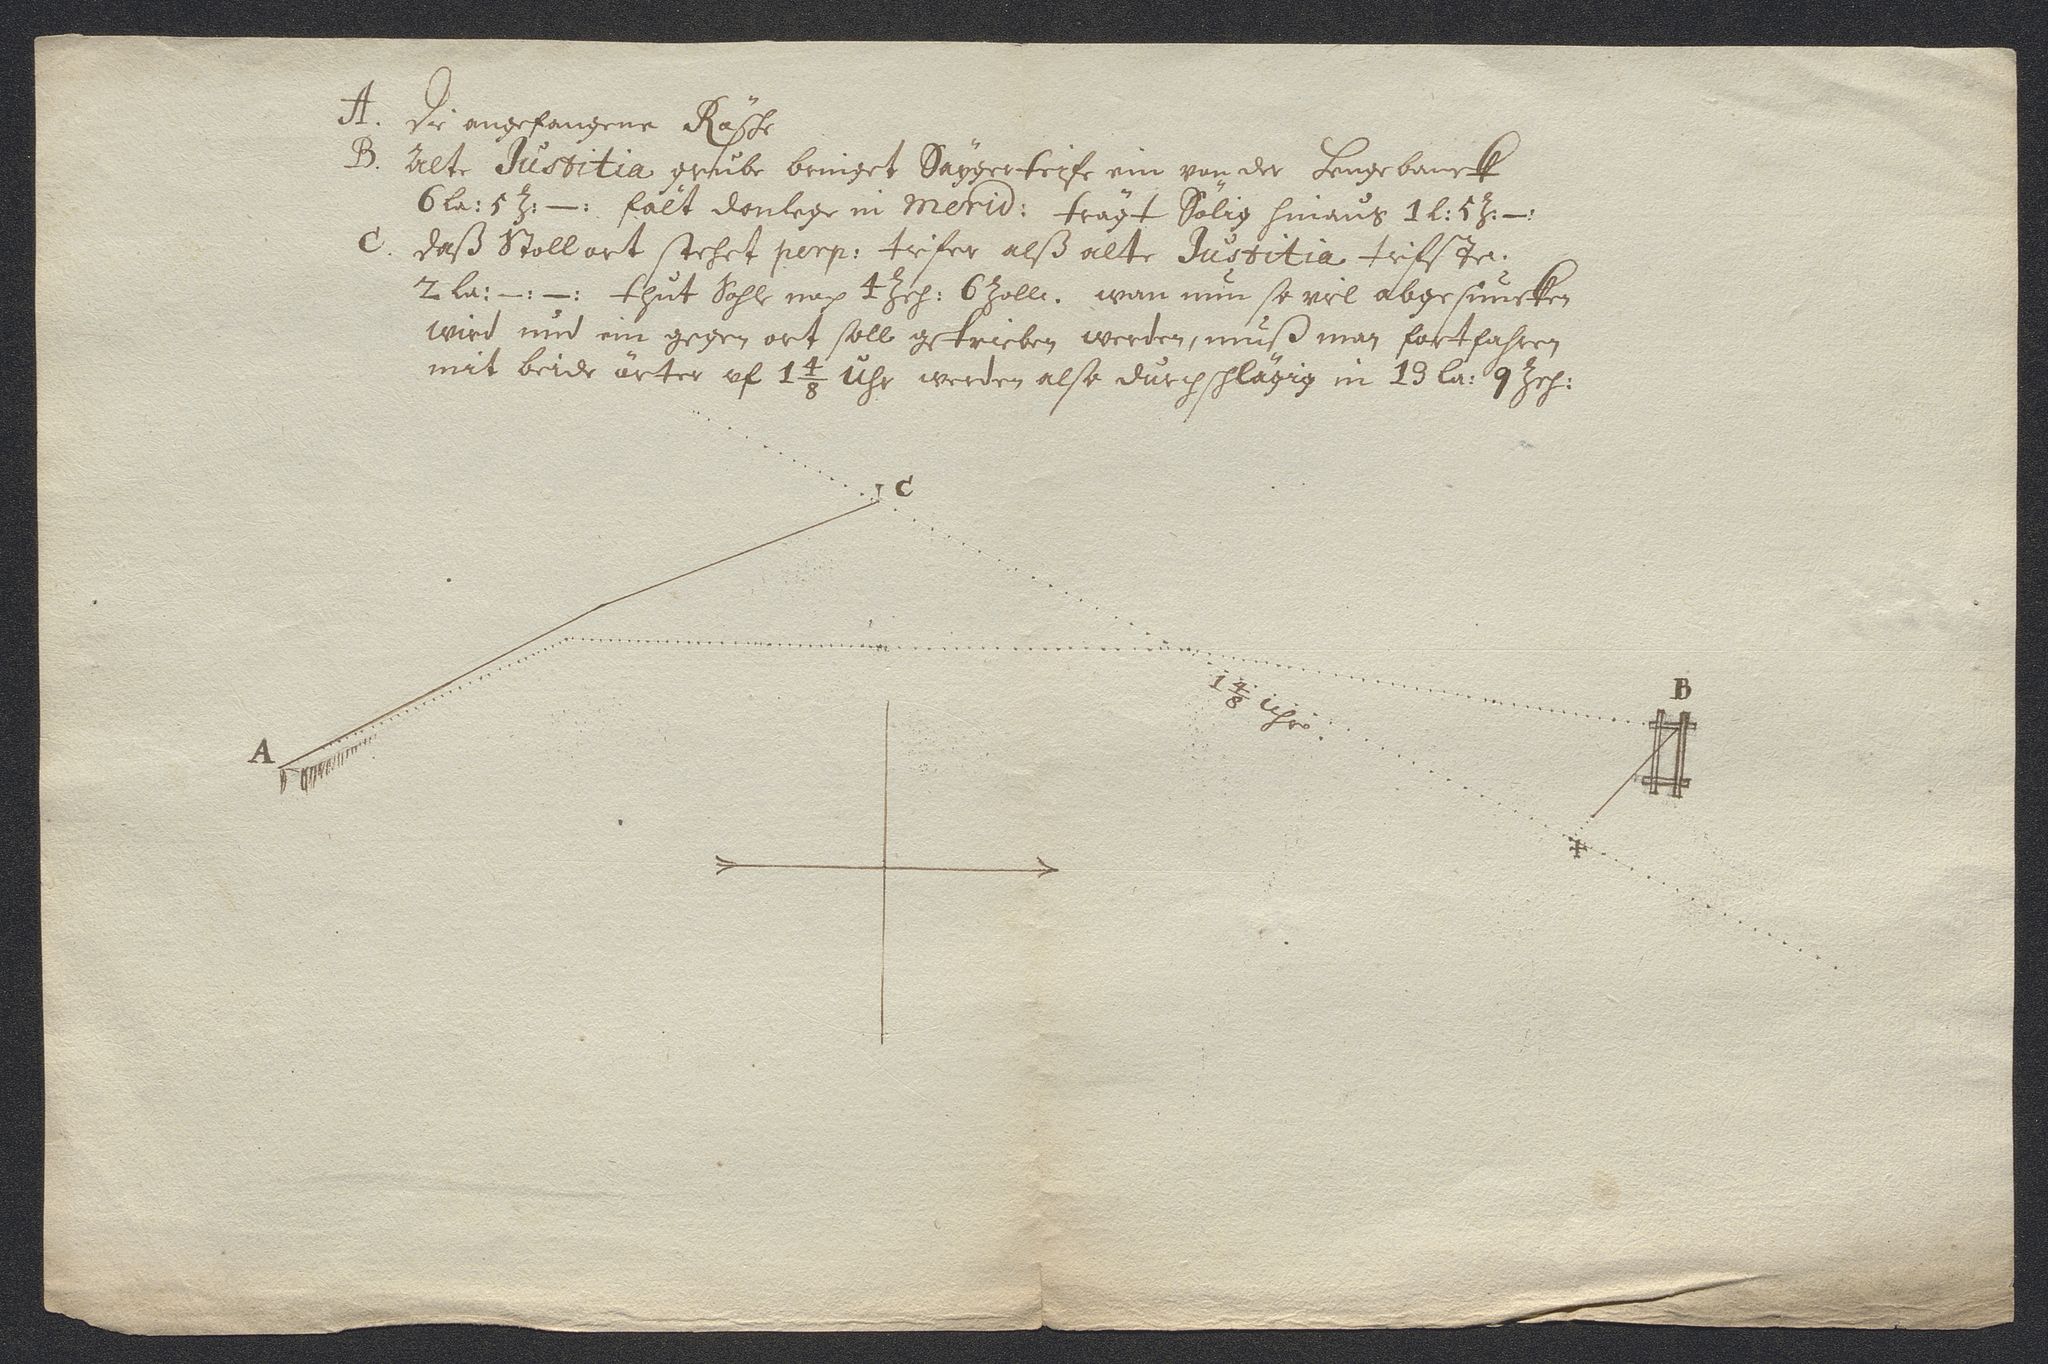 A. Die angefangene Rösche
B. Alte Justitia grube bringet Saygerteife ein von der Hengebanck
6 la: 5 Z: —: fält donlege in Merid: trägt Sölig hinaus 1 l: 5 Z: —:
C. daß Stollort stehet perp: teifer alß alte Justitia teifste.
2 la: —: —: thut Sohle noch 4 Zeh: 6 Zolle. wan nun so viel abgesuncken
wird und ein gegen ort soll getrieben werden, muß man fortfahren
mit beide örter uf 1 4/8 Uhr werden also durchschlägig in 19 la: 9 Zeh:
C
B
1 4/8 Uhr.
A